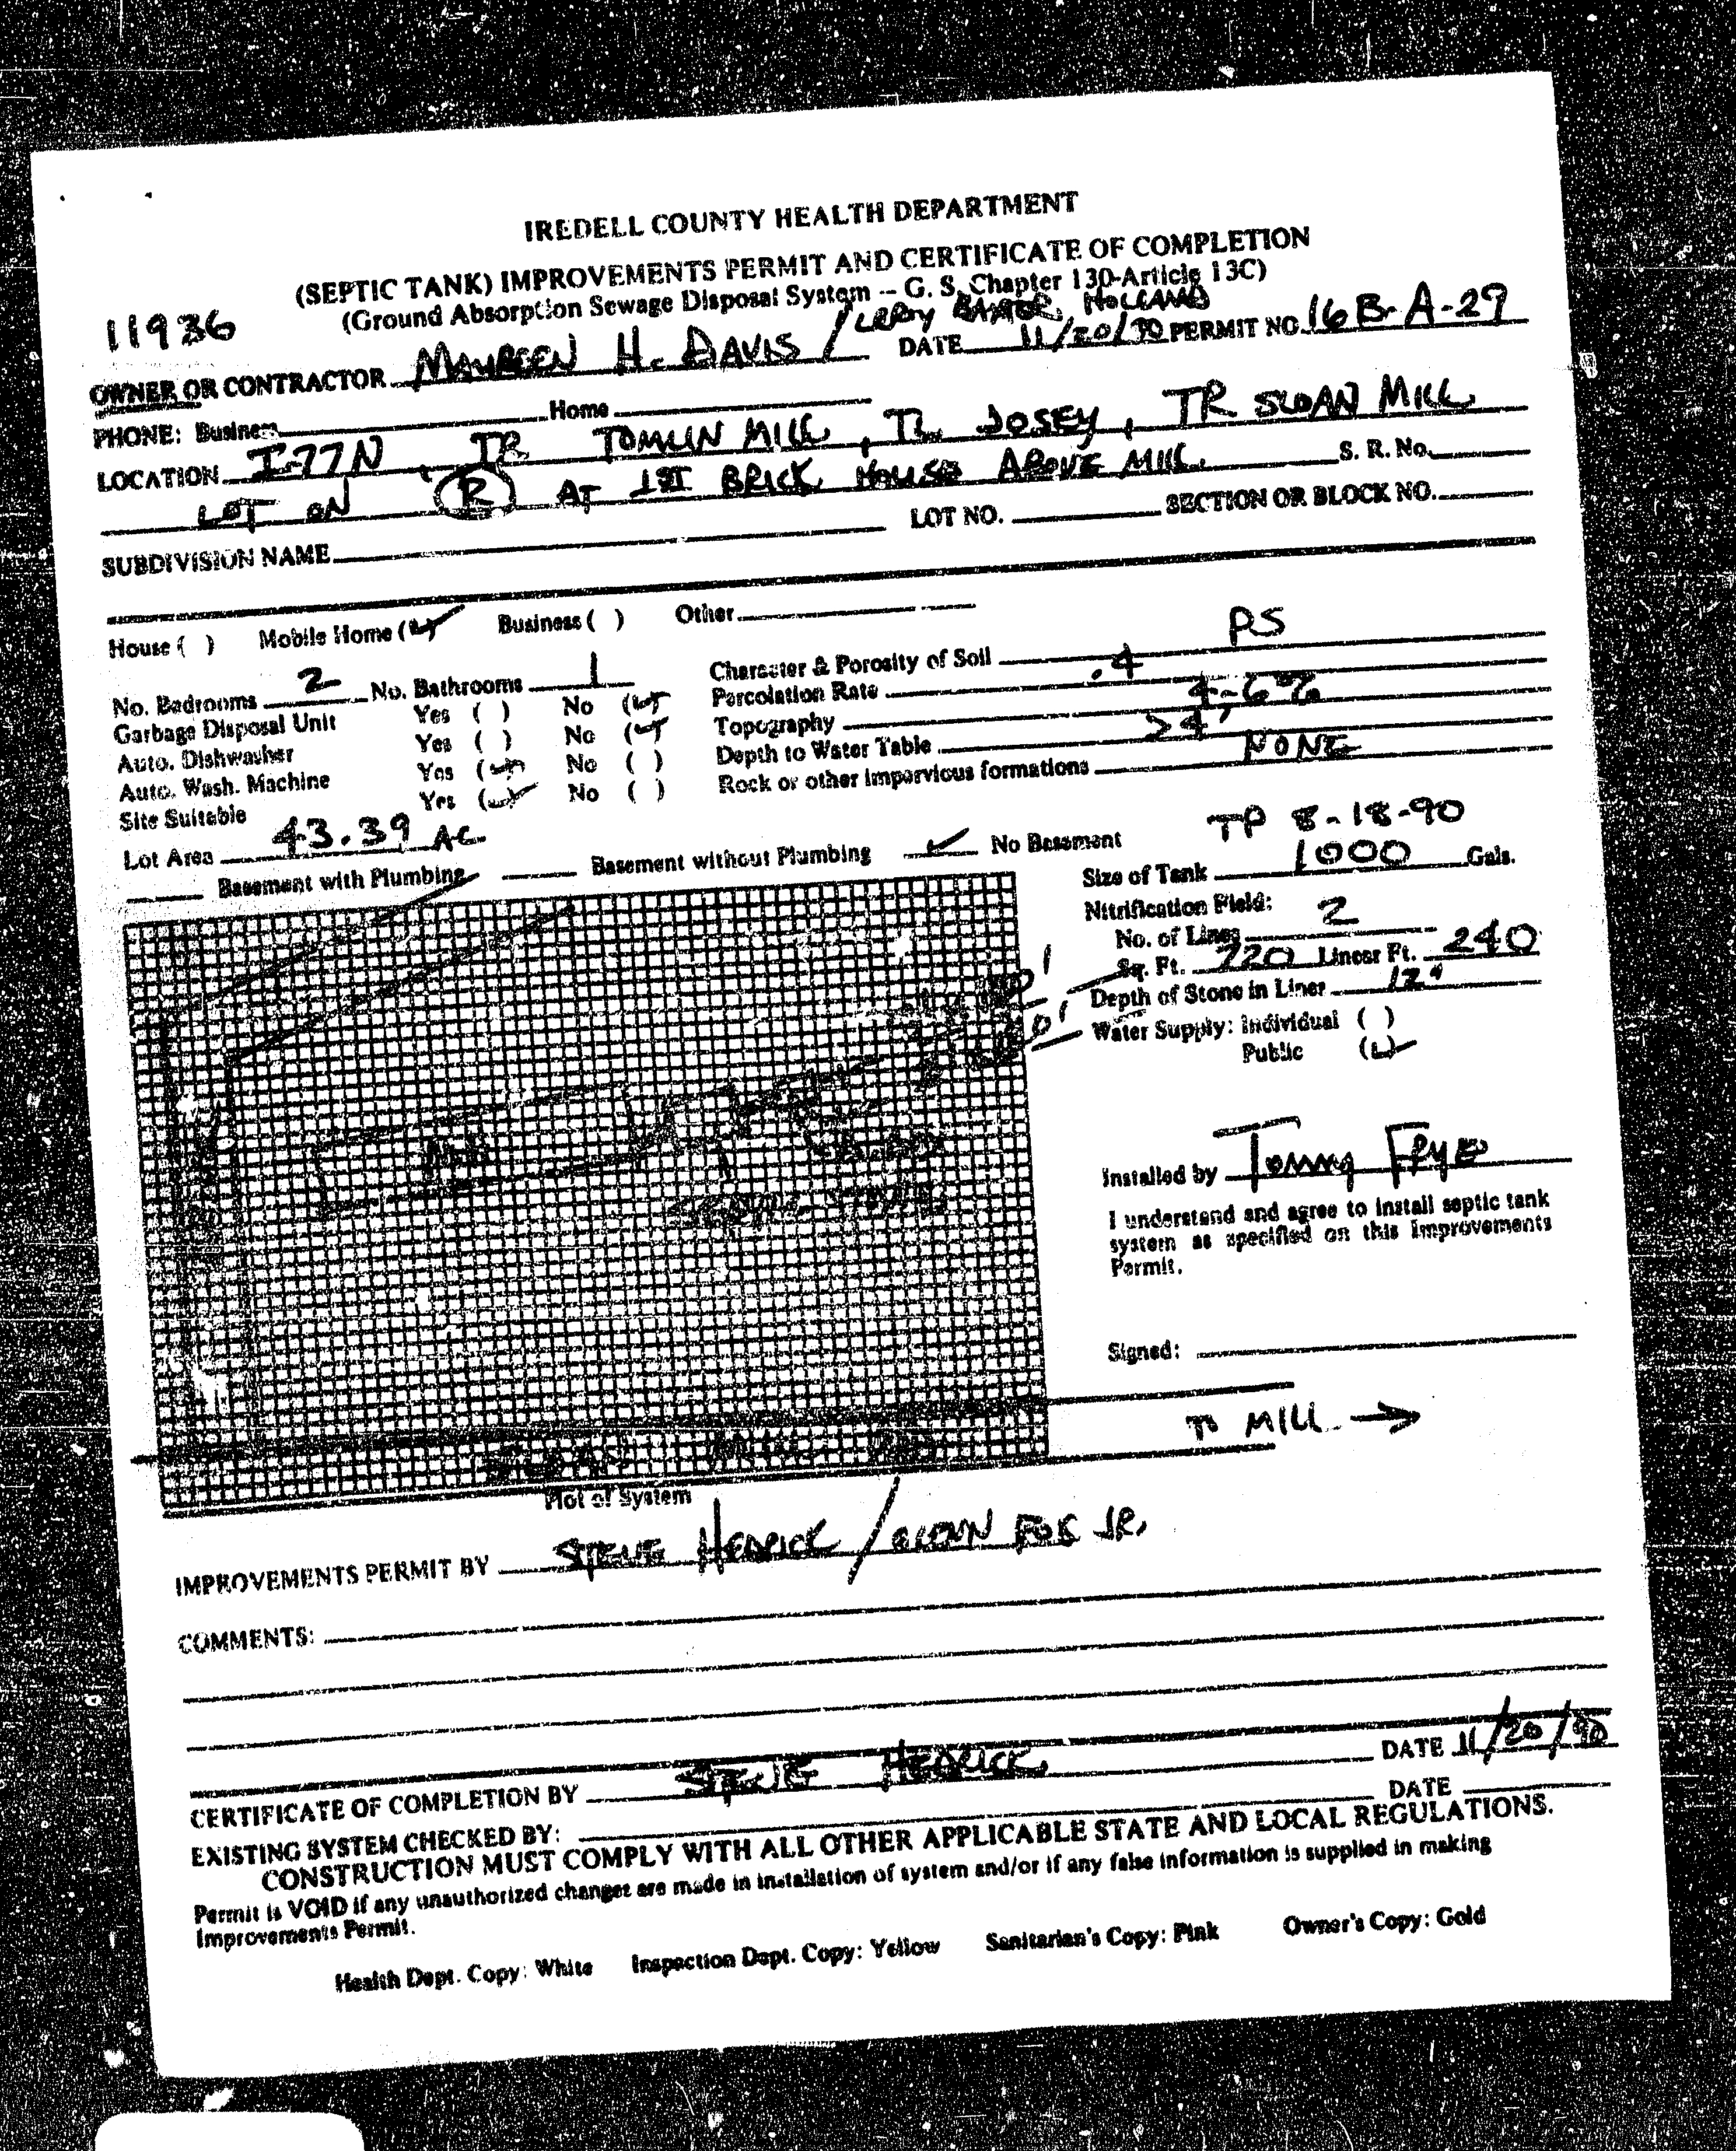 IREDELL COUNTY HEALTH DEPARTMENT
(SEPTIC TANK) IMPROVEMENTS PERMIT AND CERTIFICATE OF COMPLETION
(Ground Absorption Sewage Disposal System -- G. S. Chapter 130-Article 13C)
11936
OWNER OR CONTRACTOR MAUREEN H. DAVIS / LEROY BAXTER HOLLAND DATE 11/20/90 PERMIT NO. 16B-A-29
PHONE: Business Home
LOCATION I-77N, TR TOMLIN MILL, TL JOSEY, TR SLOAN MILL
LOT ON R AT 1ST BRICK HOUSE ABOVE MILL. S. R. No.
SUBDIVISION NAME LOT NO. SECTION OR BLOCK NO.
House ( ) Mobile Home (✓) Business ( ) Other
No. Bedrooms 2 No. Bathrooms 1 Character & Porosity of Soil PS
Garbage Disposal Unit Yes ( ) No (✓) Percolation Rate .4
Auto. Dishwasher Yes ( ) No (✓) Topography 4-6%
Auto. Wash. Machine Yes (✓) No ( ) Depth to Water Table >4'
Site Suitable Yes (✓) No ( ) Rock or other impervious formations NONE
Lot Area 43.39 AC
TP 8-18-90
Basement with Plumbing Basement without Plumbing ✓ No Basement
Size of Tank 1000 Gals.
Nitrification Field:
No. of Lines 2
Sq. Ft. 720 Linear Ft. 240
Depth of Stone in Lines 12"
Water Supply: Individual ( )
Public (✓)
Installed by Tommy FRYE
I understand and agree to install septic tank
system as specified on this Improvements
Permit.
Signed:
TO MILL →
Plot of System
IMPROVEMENTS PERMIT BY STEVE HEDRICK / GLENN FOX JR.
COMMENTS:
CERTIFICATE OF COMPLETION BY STEVE HEDRICK DATE 11/20/90
EXISTING SYSTEM CHECKED BY: DATE
CONSTRUCTION MUST COMPLY WITH ALL OTHER APPLICABLE STATE AND LOCAL REGULATIONS.
Permit is VOID if any unauthorized changes are made in installation of system and/or if any false information is supplied in making
Improvements Permit.
Health Dept. Copy: White Inspection Dept. Copy: Yellow Sanitarian's Copy: Pink Owner's Copy: Gold